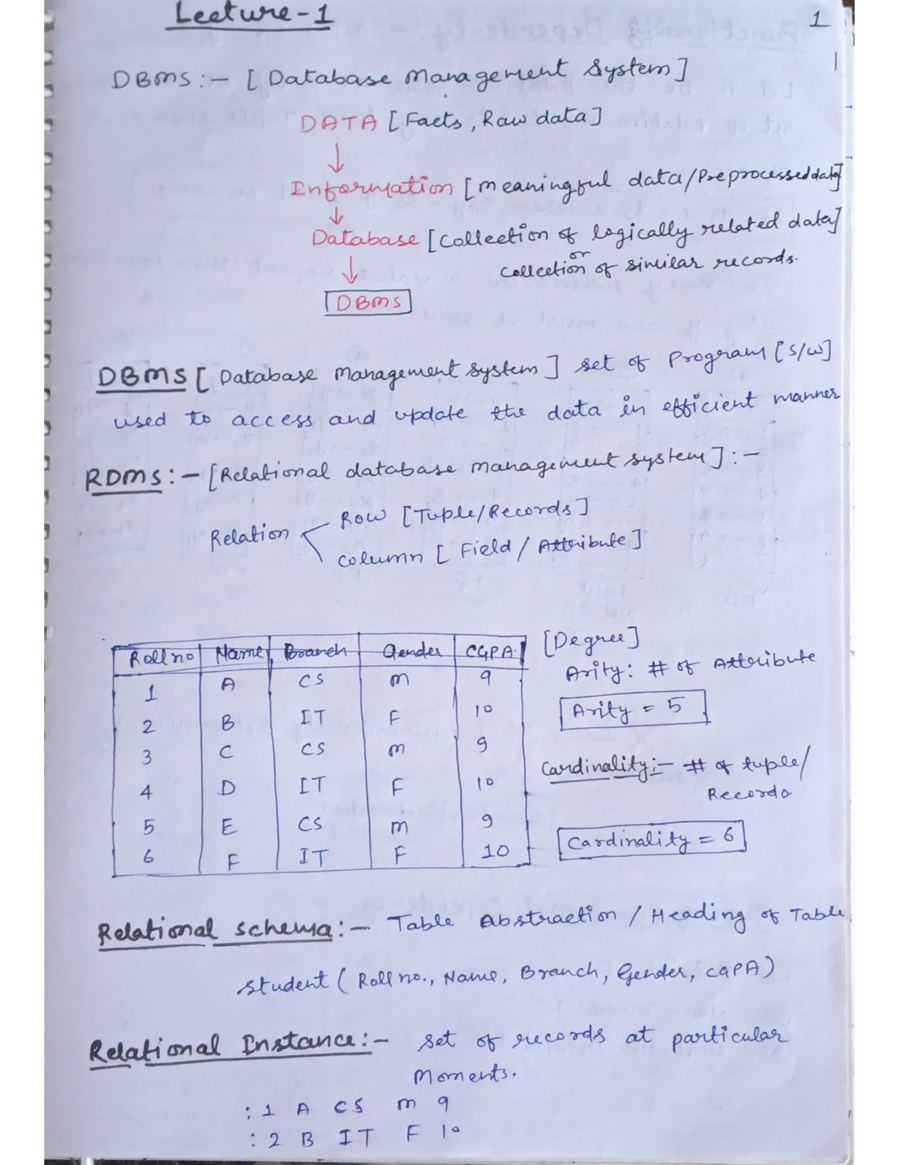 Lecture-1
1
DBMS :- [Database Management System]
DATA [Facts, Raw data]
↓
Information [meaningful data/Preprocessed data]
↓
Database [Collection of logically related data]
or
collection of similar records.
↓
DBMS
DBMS [Database Management System] set of Program [S/W]
used to access and update the data in efficient manner
RDMS :- [Relational database management system] :-
Row [Tuple/Records]
Relation
Column [Field / Attribute]
Roll no Name Branch Gender CGPA
1 A CS M 9
2 B IT F 10
3 C CS M 9
4 D IT F 10
5 E CS M 9
6 F IT F 10
[Degree]
Arity: # of Attribute
Arity = 5
Cardinality:- # of tuple/
Records
Cardinality = 6
Relational Schema :- Table Abstraction / Heading of Table
Student (Roll no., Name, Branch, Gender, CGPA)
Relational Instance :- Set of records at particular
Moments.
: 1 A CS M 9
: 2 B IT F 10